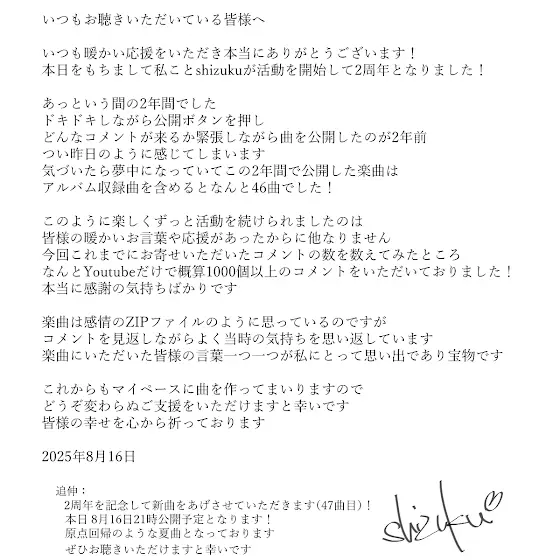 いつもお聴きいただいている皆様へ
いつも暖かい応援をいただき本当にありがとうございます！
本日をもちまして私ことshizukuが活動を開始して2周年となりました！
あっという間の2年間でした
ドキドキしながら公開ボタンを押し
どんなコメントが来るか緊張しながら曲を公開したのが2年前
つい昨日のように感じてしまいます
気づいたら夢中になっていてこの2年間で公開した楽曲は
アルバム収録曲を含めるとなんと46曲でした！
このように楽しくずっと活動を続けられましたのは
皆様の暖かいお言葉や応援があったからに他なりません
今回これまでにお寄せいただいたコメントの数を数えてみたところ
なんとYoutubeだけで概算1000個以上のコメントをいただいておりました！
本当に感謝の気持ちばかりです
楽曲は感情のZIPファイルのように思っているのですが
コメントを見返しながらよく当時の気持ちを思い返しています
楽曲にいただいた皆様の言葉一つ一つが私にとって思い出であり宝物です
これからもマイペースに曲を作ってまいりますので
どうぞ変わらぬご支援をいただけますと幸いです
皆様の幸せを心から祈っております
2025年8月16日
追伸：
2周年を記念して新曲をあげさせていただきます(47曲目)！
本日 8月16日21時公開予定となります！
原点回帰のような夏曲となっております
ぜひお聴きいただけますと幸いです
shizuku